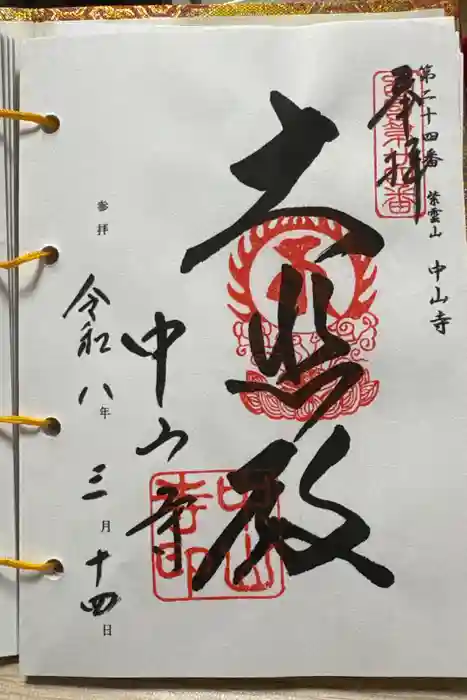 第二十四番 紫雲山 中山寺
奉拝
大悲殿
中山寺
中山
寺印
参拝
令和八年三月十四日